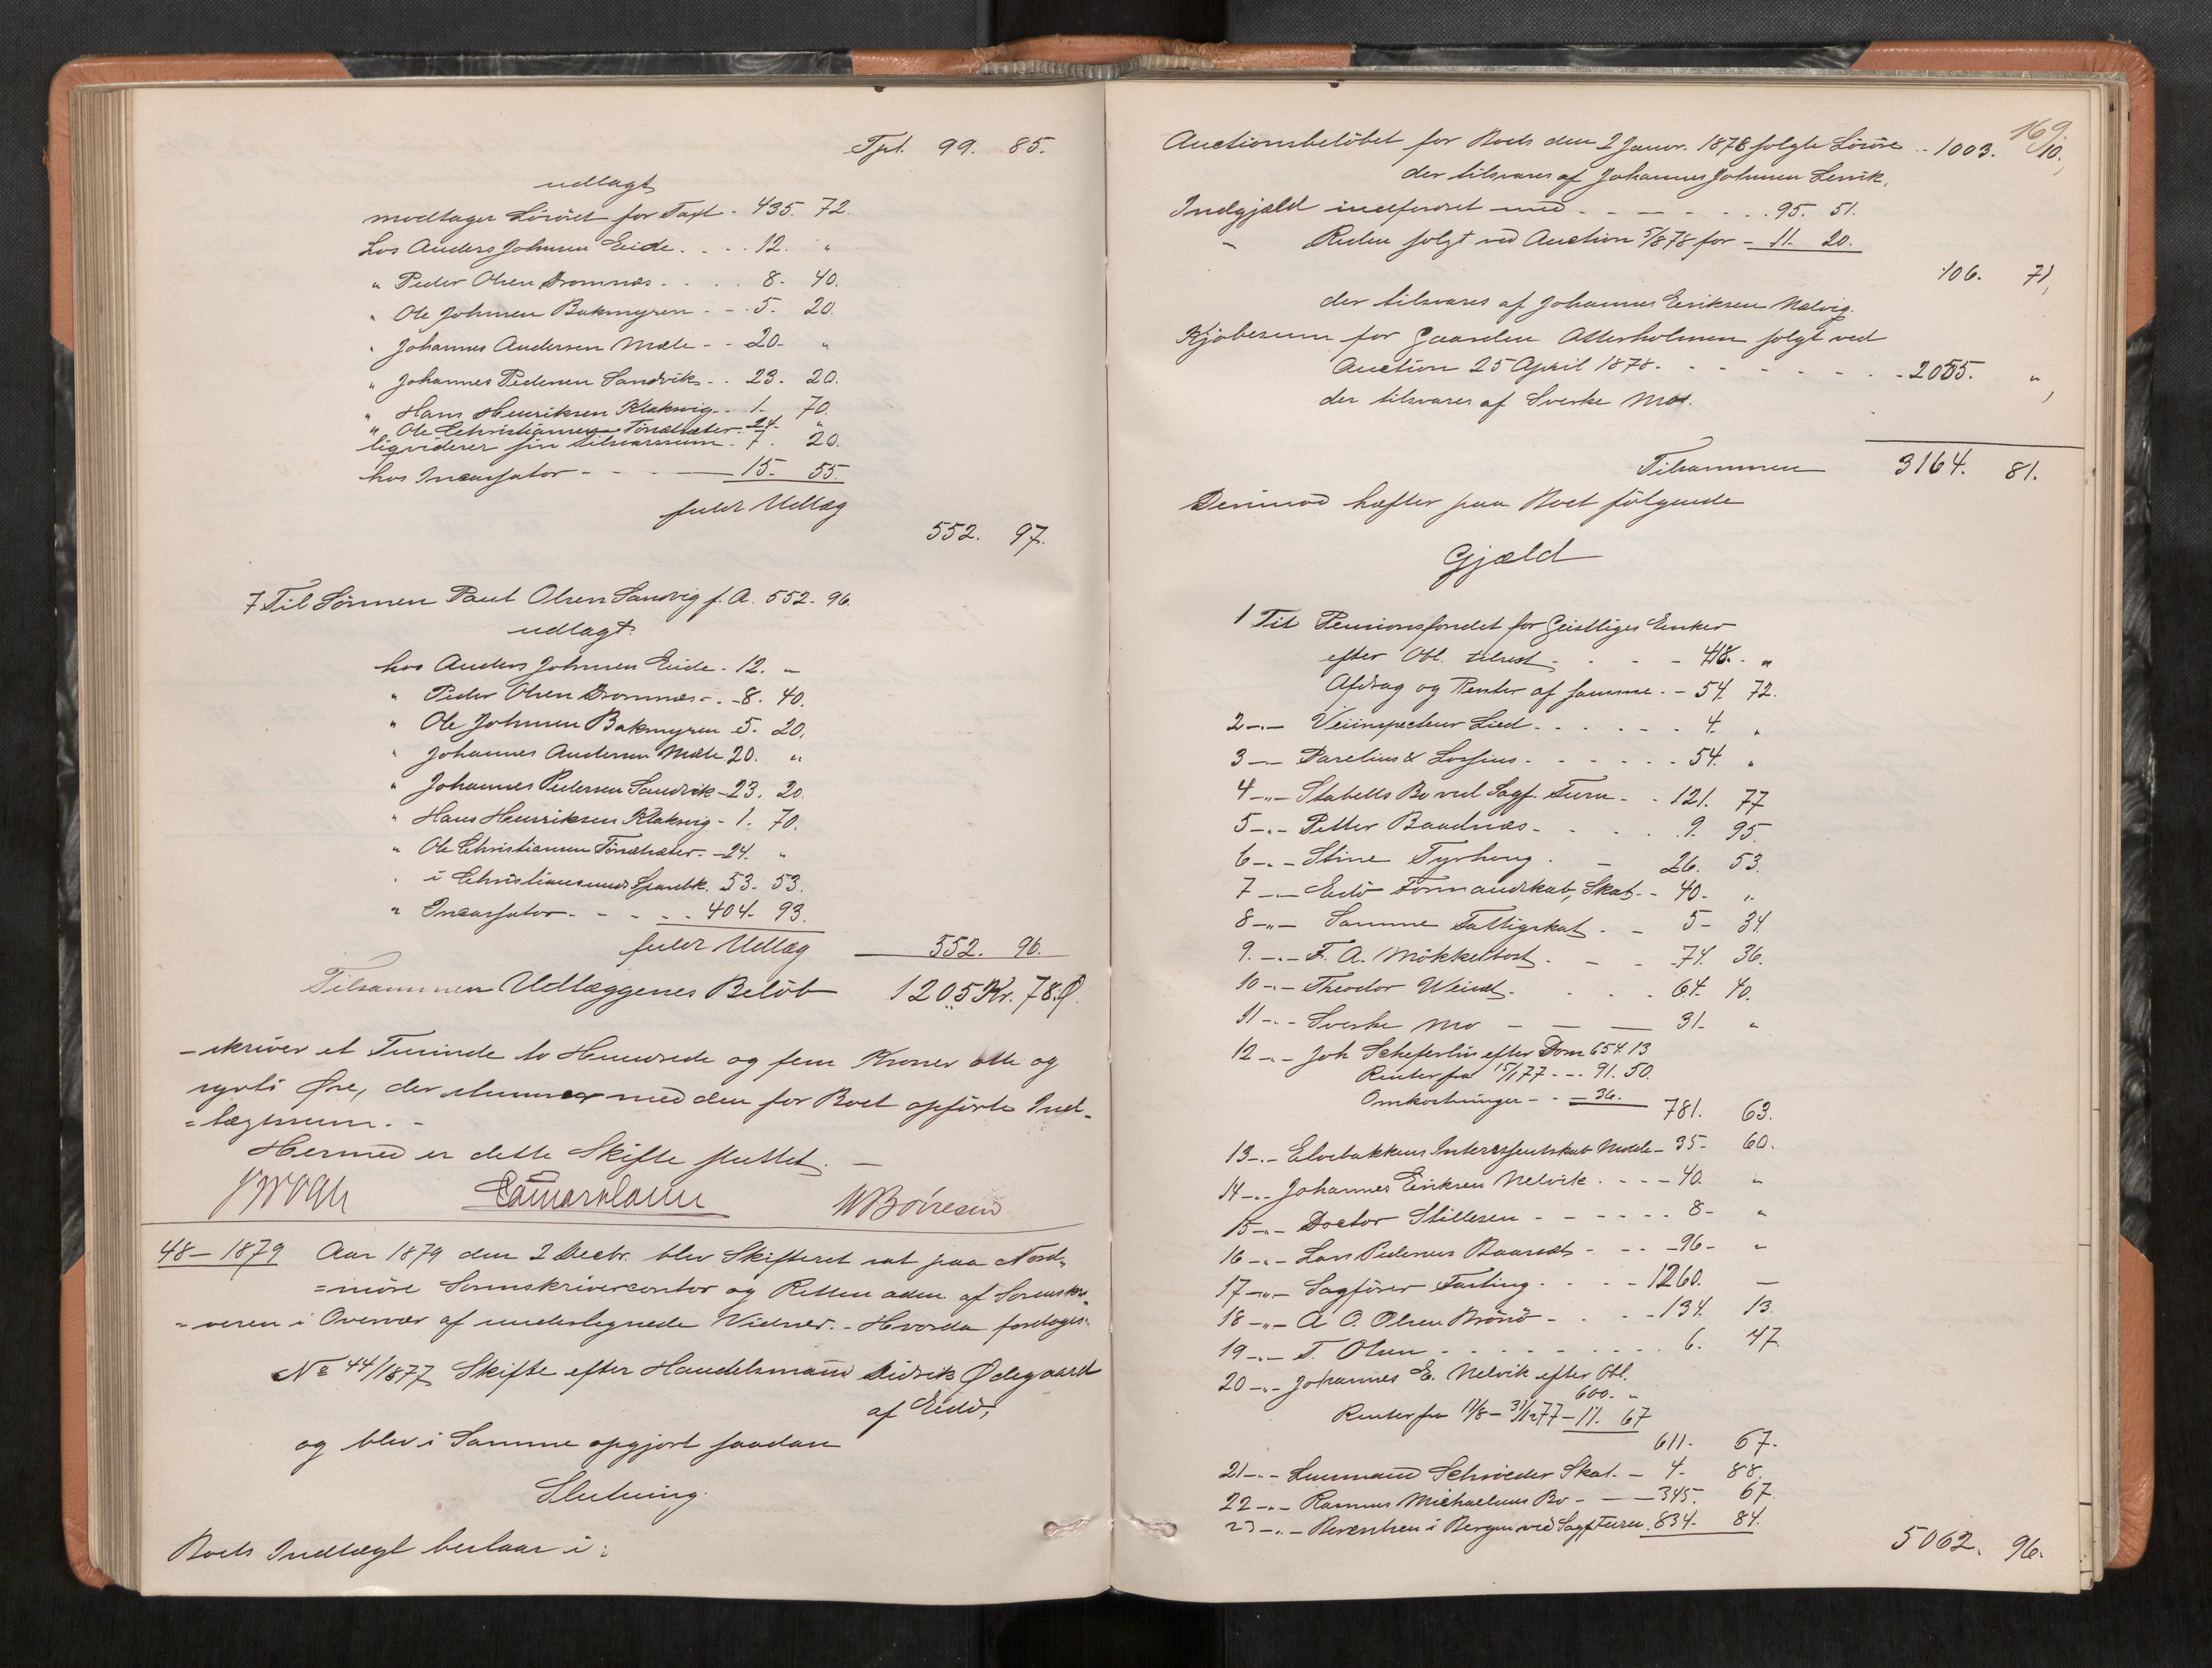 Tpt. 99. 85.
udlagt
modtager Lösöret for Taxt - 435. 72.
hos Anders Johnsen Eide. - - - 12. "
" Peder Olsen Dromnæs. - - - 8. 40.
" Ole Johnsen Bakmyren - - - 5. 20.
" Johannes Andersen Mæle - - 20. "
" Johannes Pedersen Sandvik - - 23. 20.
" Hans Henriksen Klakvig - - 1. 70.
" Ole Christiansen Tönsæter - 24. "
liqviderer sin Tilsvarssum - 7. 20.
hos Incassator - - - 15. 55.
fuldt Udlæg
552. 97.
7 Til Sönnen Paul Olsen Sandvig f. A. 552. 96.
udlagt
hos Anders Johnsen Eide - 12. "
" Peder Olsen Dromnæs - - 8. 40.
" Ole Johnsen Bakmyren 5. 20.
" Johannes Andersen Mæle 20. "
" Johannes Pedersen Sandvik - 23. 20.
" Hans Henriksen Klakvig - 1. 70.
" Ole Christiansen Tönsæter - 24. "
" i Christianssunds Sparebk. 53. 53.
" Incassator - - - - 404. 93.
fuldt Udlæg 552. 96.
Tilsammen Udlæggenes Belöb 1205 Kr. 78 Ø.
- skriver et Tusinde to Hundrede og fem Kroner otte og
sytti Øre, der stemmer med den for Boet opförte Ind-
=tægtssum. -
Hermed er dette Skifte sluttet. -
W Börresen
48 - 1879 Aar 1879 den 2 Decbr. blev Skifteret sat paa Nord-
=möre Sorenskrivercontor og Retten adm. af Sorenskri-
=veren i Overvær af undertegnede Vidner. - Hvorda foretoges:
No 44/1877 Skifte efter Handelsmand Didrik Ødegaard
af Eidö,
og blev i Samme opgjort saadan
Slutning.
Boets Indtægt bestaar i:
169.
Auctionsbelöbet for Boets den 2 Januar. 1878 solgte Lösöre - 1003. 10.
der tilsvares af Johannes Johnsen Lervik.
Indgjæld inddrevet med - - - - - - 95. 51.
" Resten solgt ved Auction 5/8 78 for - 11. 20.
106. 71,
der tilsvares af Johannes Eeriksen Nelvig.
Kjöbesum for Gaarden Atterholmen solgt ved
Auction 25 April 1878. - - - - - - 2055. "
der tilsvares af Sverke Mo.
Tilsammen 3164. 81.
Derimod hæfter paa Boet fölgende
Gjæld
1 Til Pensionsfondet for Geistliges Enker
efter Obl. tilrest - - - 418. "
Afdrag og Renter af samme. - 54. 72.
2 -"- Veiinspecteur Lied - - - - - 4. "
3 -"- Parelius & Lossius - - - - - 54. "
4 -"- Stabells Bo ved Sagf. Turn - - 121. 77
5 -"- Petter Baadnæs - - - 9. 95.
6 -"- Stine Tyrhoug. - 26. 53.
7 -"- Eidö Formandskab, Skat - - 40. "
8 -"- Samme Fattigskat. - 5. 34
9. -"- F. A. Mökkelbost. - - 74. 36.
10 -"- Theodor Weidt. - - - 64. 40.
11 -"- Sverke Mo - - - 31. "
12 -"- Joh Scheflin efter Dom 654. 13
Renter fra 15/1 77 - - - 91. 50.
Omkostninger - - - 36.
781. 63.
13 -"- Elvebakkens Interessentskab Molde - 35. 60.
14 -"- Johannes Eriksen Nelvik. - - - 40. "
15 -"- Doctor Stillesen - - - - - 8. "
16 -"- Lars Pedersen Baarset - - - 96. "
17 -"- Sagförer Fasting. - - - 1260. -
18 -"- A O. Olsen Brönö - - - 134. 13.
19 -"- T. Olsen - - - - - - 6. 47
20 -"- Johannes E. Nelvik efter Obl.
600. "
Renter fra 11/8 - 31/12 77 - 11. 67
611. 67.
21 -"- Lensmand Schröeder Skat. - 4. 88.
22 -"- Rasmus Michaelsens Bo - - - 345. 67.
23 -"- Berentsen i Bergen ved Sagf Turn. 834. 84.
5062. 96.